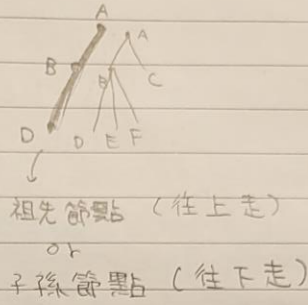 A
A
B
B
C
D
D
E
F
祖先節點 (往上走)
or
子孫節點 (往下走)